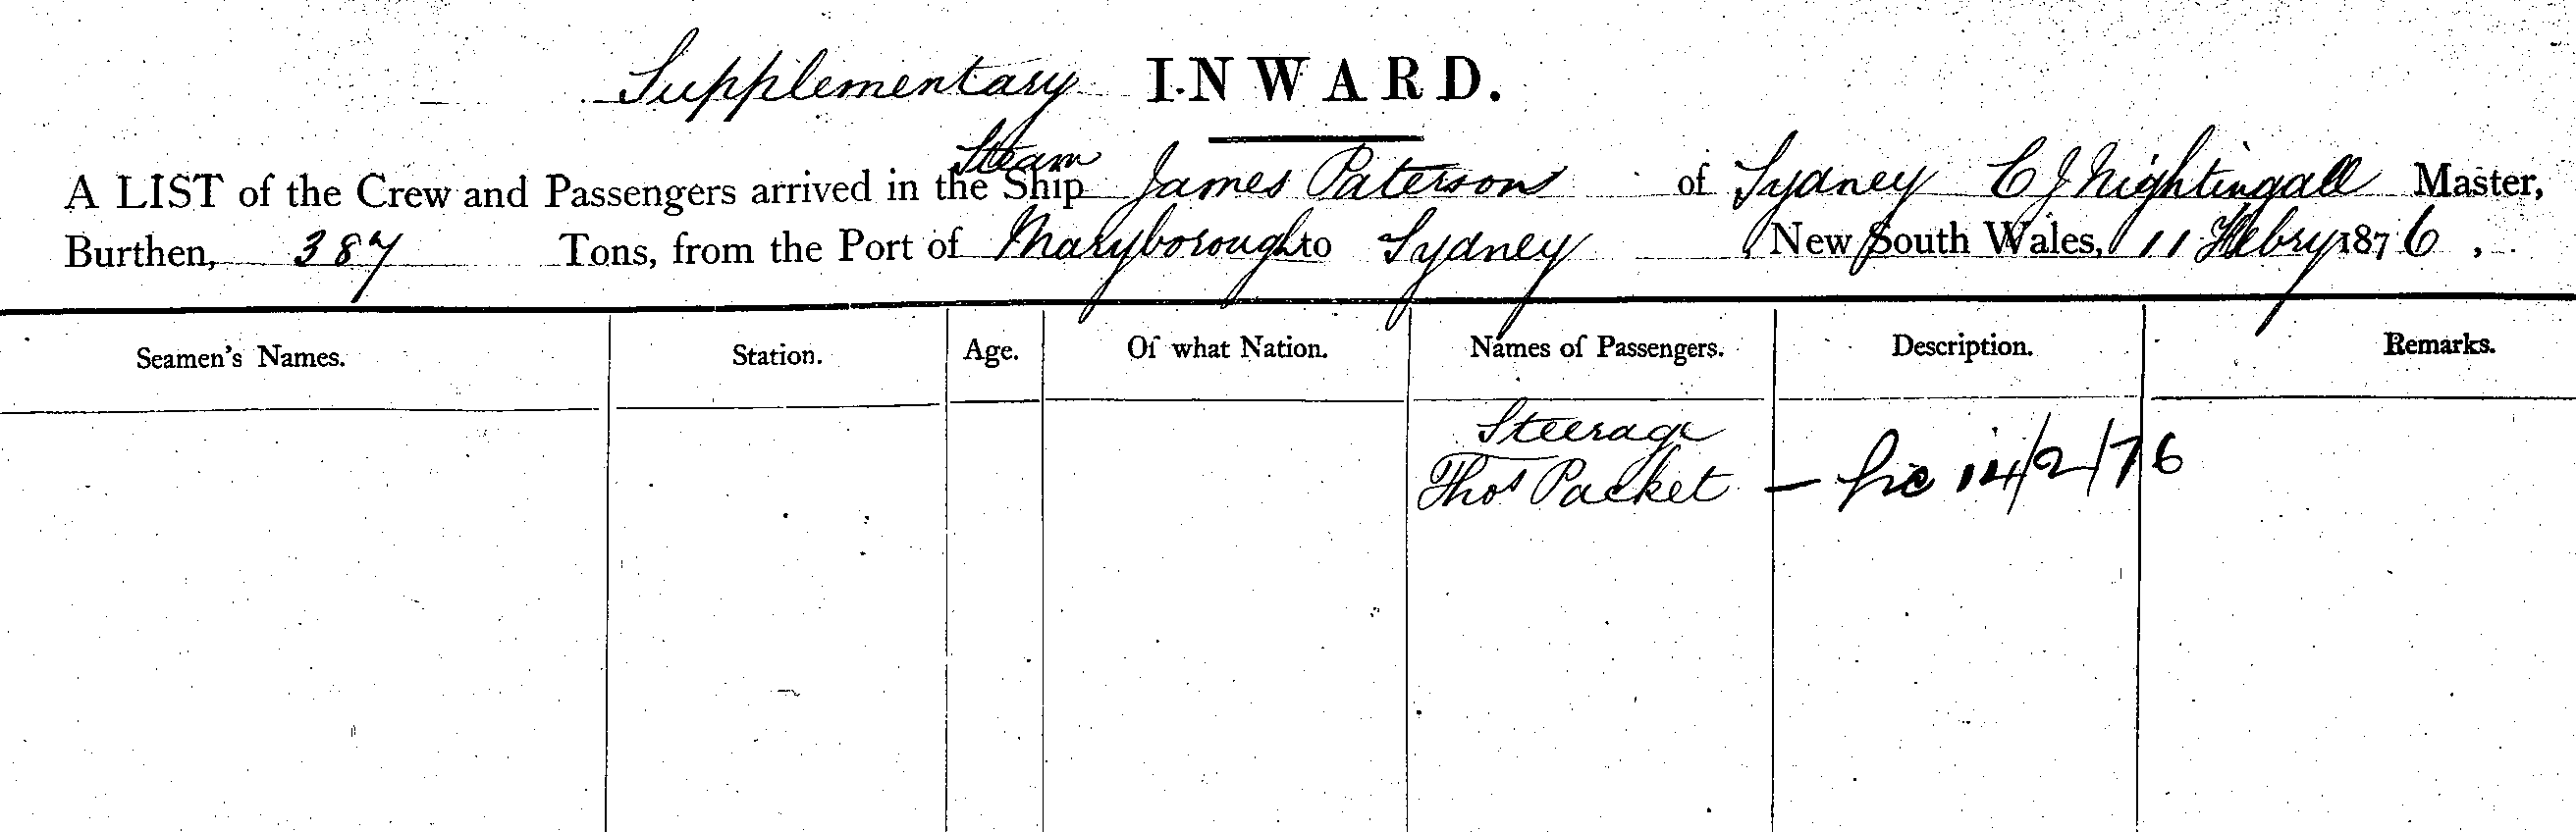 Supplementary INWARD.
Steam
A LIST of the Crew and Passengers arrived in the Ship James Paterson of Sydney C J Nightingall Master,
Burthen, 387 Tons, from the Port of Maryborough to Sydney New South Wales, 11 Febry 1876,
Seamen's Names. Station. Age. Of what Nation. Names of Passengers. Description. Remarks.
Steerage
Thos Packet — 14/2/76